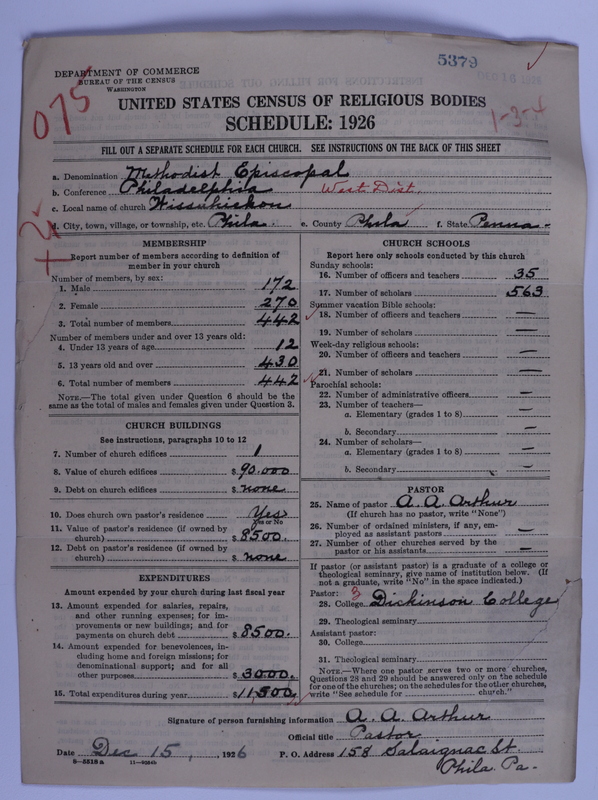 5379
DEPARTMENT OF COMMERCE
BUREAU OF THE CENSUS
WASHINGTON
075
1-3-4
UNITED STATES CENSUS OF RELIGIOUS BODIES
SCHEDULE: 1926
FILL OUT A SEPARATE SCHEDULE FOR EACH CHURCH. SEE INSTRUCTIONS ON THE BACK OF THIS SHEET
a. Denomination Methodist Episcopal
b. Conference Philadelphia West Dist.
c. Local name of church Wissahickon
d. City, town, village, or township, etc. Phila. e. County Phila f. State Penna-
MEMBERSHIP
Report number of members according to definition of
member in your church
Number of members, by sex:
1. Male 172
2. Female 270
3. Total number of members 442
Number of members under and over 13 years old:
4. Under 13 years of age 12
5. 13 years old and over 430
6. Total number of members 442
NOTE.—The total given under Question 6 should be the
same as the total of males and females given under Question 3.
CHURCH BUILDINGS
See instructions, paragraphs 10 to 12
7. Number of church edifices 1
8. Value of church edifices $ 90.000
9. Debt on church edifices $ none
10. Does church own pastor's residence Yes
Yes or No
11. Value of pastor's residence (if owned by
church) $ 8500.
12. Debt on pastor's residence (if owned by
church) $ none
EXPENDITURES
Amount expended by your church during last fiscal year
13. Amount expended for salaries, repairs,
and other running expenses; for im-
provements or new buildings; and for
payments on church debt $ 8500.
14. Amount expended for benevolences, in-
cluding home and foreign missions; for
denominational support; and for all
other purposes $ 3000.
15. Total expenditures during year $ 11,500
CHURCH SCHOOLS
Report here only schools conducted by this church
Sunday schools:
16. Number of officers and teachers 35
17. Number of scholars 563
Summer vacation Bible schools:
18. Number of officers and teachers —
19. Number of scholars —
Week-day religious schools:
20. Number of officers and teachers —
21. Number of scholars —
Parochial schools:
22. Number of administrative officers —
23. Number of teachers—
a. Elementary (grades 1 to 8) —
b. Secondary —
24. Number of scholars—
a. Elementary (grades 1 to 8) —
b. Secondary —
PASTOR
25. Name of pastor A. A. Arthur
(If church has no pastor, write "None")
26. Number of ordained ministers, if any, em-
ployed as assistant pastors —
27. Number of other churches served by the
pastor or his assistants —
If pastor (or assistant pastor) is a graduate of a college or
theological seminary, give name of institution below. (If
not a graduate, write "No" in the space indicated.)
Pastor:
28. College Dickinson College
29. Theological seminary
Assistant pastor:
30. College
31. Theological seminary
NOTE.—Where one pastor serves two or more churches,
Questions 28 and 29 should be answered only on the schedule
for one of the churches; on the schedules for the other churches,
write "See schedule for church."
Signature of person furnishing information A. A. Arthur
Official title Pastor
Date Dec 15, 1926 P. O. Address 158 Salaignac St.
Phila. Pa-
8-5518a 11-9034b